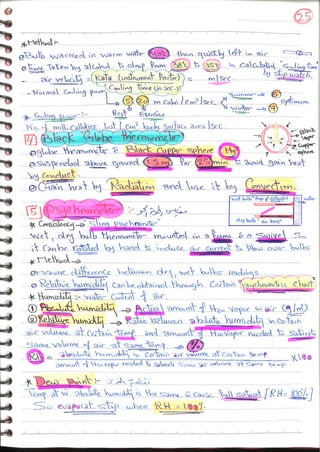 25
* Method:-
① Bulb warmed in warm water 40°C then quickly left in air
② Time taken by alcohol to drop from 38°C to 35°C is calculated (Cooling time) by stop watch.
air velocity = Kata (instrument Factor) = m/sec
(Cooling time (in sec.))²
- Normal cooling power 5 20 m Calri/cm²/sec. Summer 6
optimum
winter 4
* Cooling power:- Rest Exercise
No. of millicalories lost / cm² body surface area/sec.
4] Black Globe thermometer
Black layer
Cupper sphere
① globe thermometer & Black Cupper sphere
② suspended above ground 1.5 m For 25 min to avoid gain heat
by Conduct.
③ Gain heat by Radiation and lose it by Convection.
5] Psychrometer
wet bulb
dry bulb
* Consistency → Sling psychrometer
Wet, dry bulb thermometer mounted in a Frame & a Swivel So
it Can be rotated by hand to induce air current to flow over bulbs
* Method →
① observe difference between dry, wet bulbs readings.
② Relative humidity Can be obtained through Certain psychrometric chart
* Humidity:- Water Content of air.
① Absolut humidity → Actual amount of H₂O vapor in air (g/m³)
② Relative humidity → Ratio between absolute humidity in Certain
air volume at Certain Temp and amount of H₂O vapor needed to saturate
same volume of air at same temp. → %
RH = absolute humidity in Certain air volume at Certain temp X100
amount of H₂O vapor needed to saturate same air volume at same temp
* Dew point:-
Temp. at w. absolute humidity is the same & Cause full saturat. [RH = 100%]
So evaporat. stop when RH = 100%